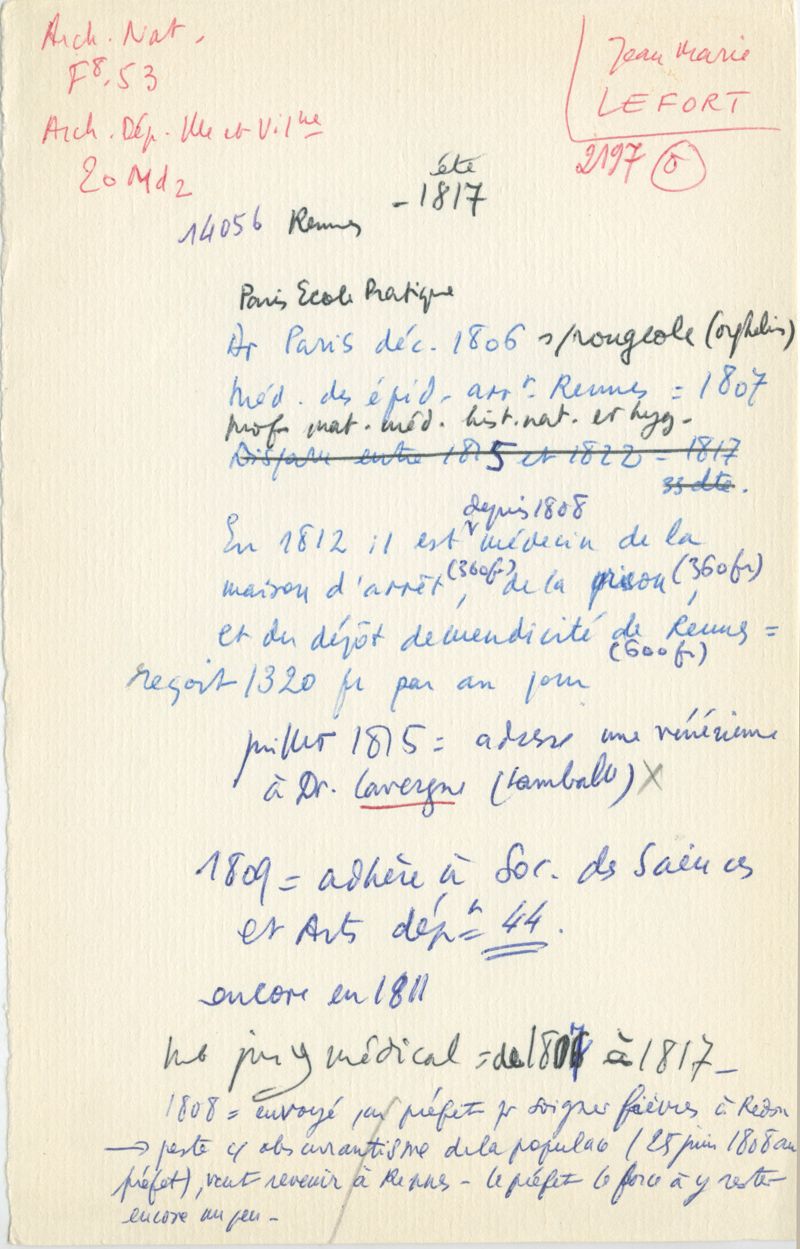 Arch. Nat.
F⁸.53
Arch. Dép. Ille et Vilne
20 Md2
Jean Marie
LEFORT
2197 ō
été
14056 Rennes - 1817
Paris Ecole Pratique
Dr Paris déc. 1806 s/rougeole (orphelin)
Méd. des épid. arrt. Rennes = 1807
prof. mat. méd. hist. nat. et hyg.
Disparu entre 1815 et 1822 = 1817
33 dte.
depuis 1808
En 1812 il est médecin de la
maison d'arrêt (360fr), de la prison (360fr),
et du dépôt de mendicité de Rennes =
(600 fr)
reçoit 1320 fr par an pour
juillet 1815 = adresse une vénérienne
à Dr. Lavergne (Lamballe) X
1809 = adhère à Soc. des Sciences
et Arts dépt = 44.
encore en 1811
mb jury médical = de 1807 à 1817
1808 = envoyé par préfet pr soigner fièvres à Redon
→ peste c/ obscurantisme de la populac (25 juin 1808 au
préfet), veut revenir à Rennes - le préfet le force à y rester
encore un peu -